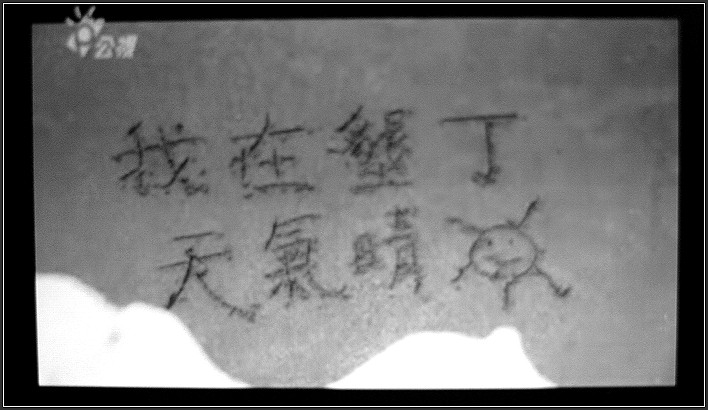 公視
我在墾丁
天氣晴